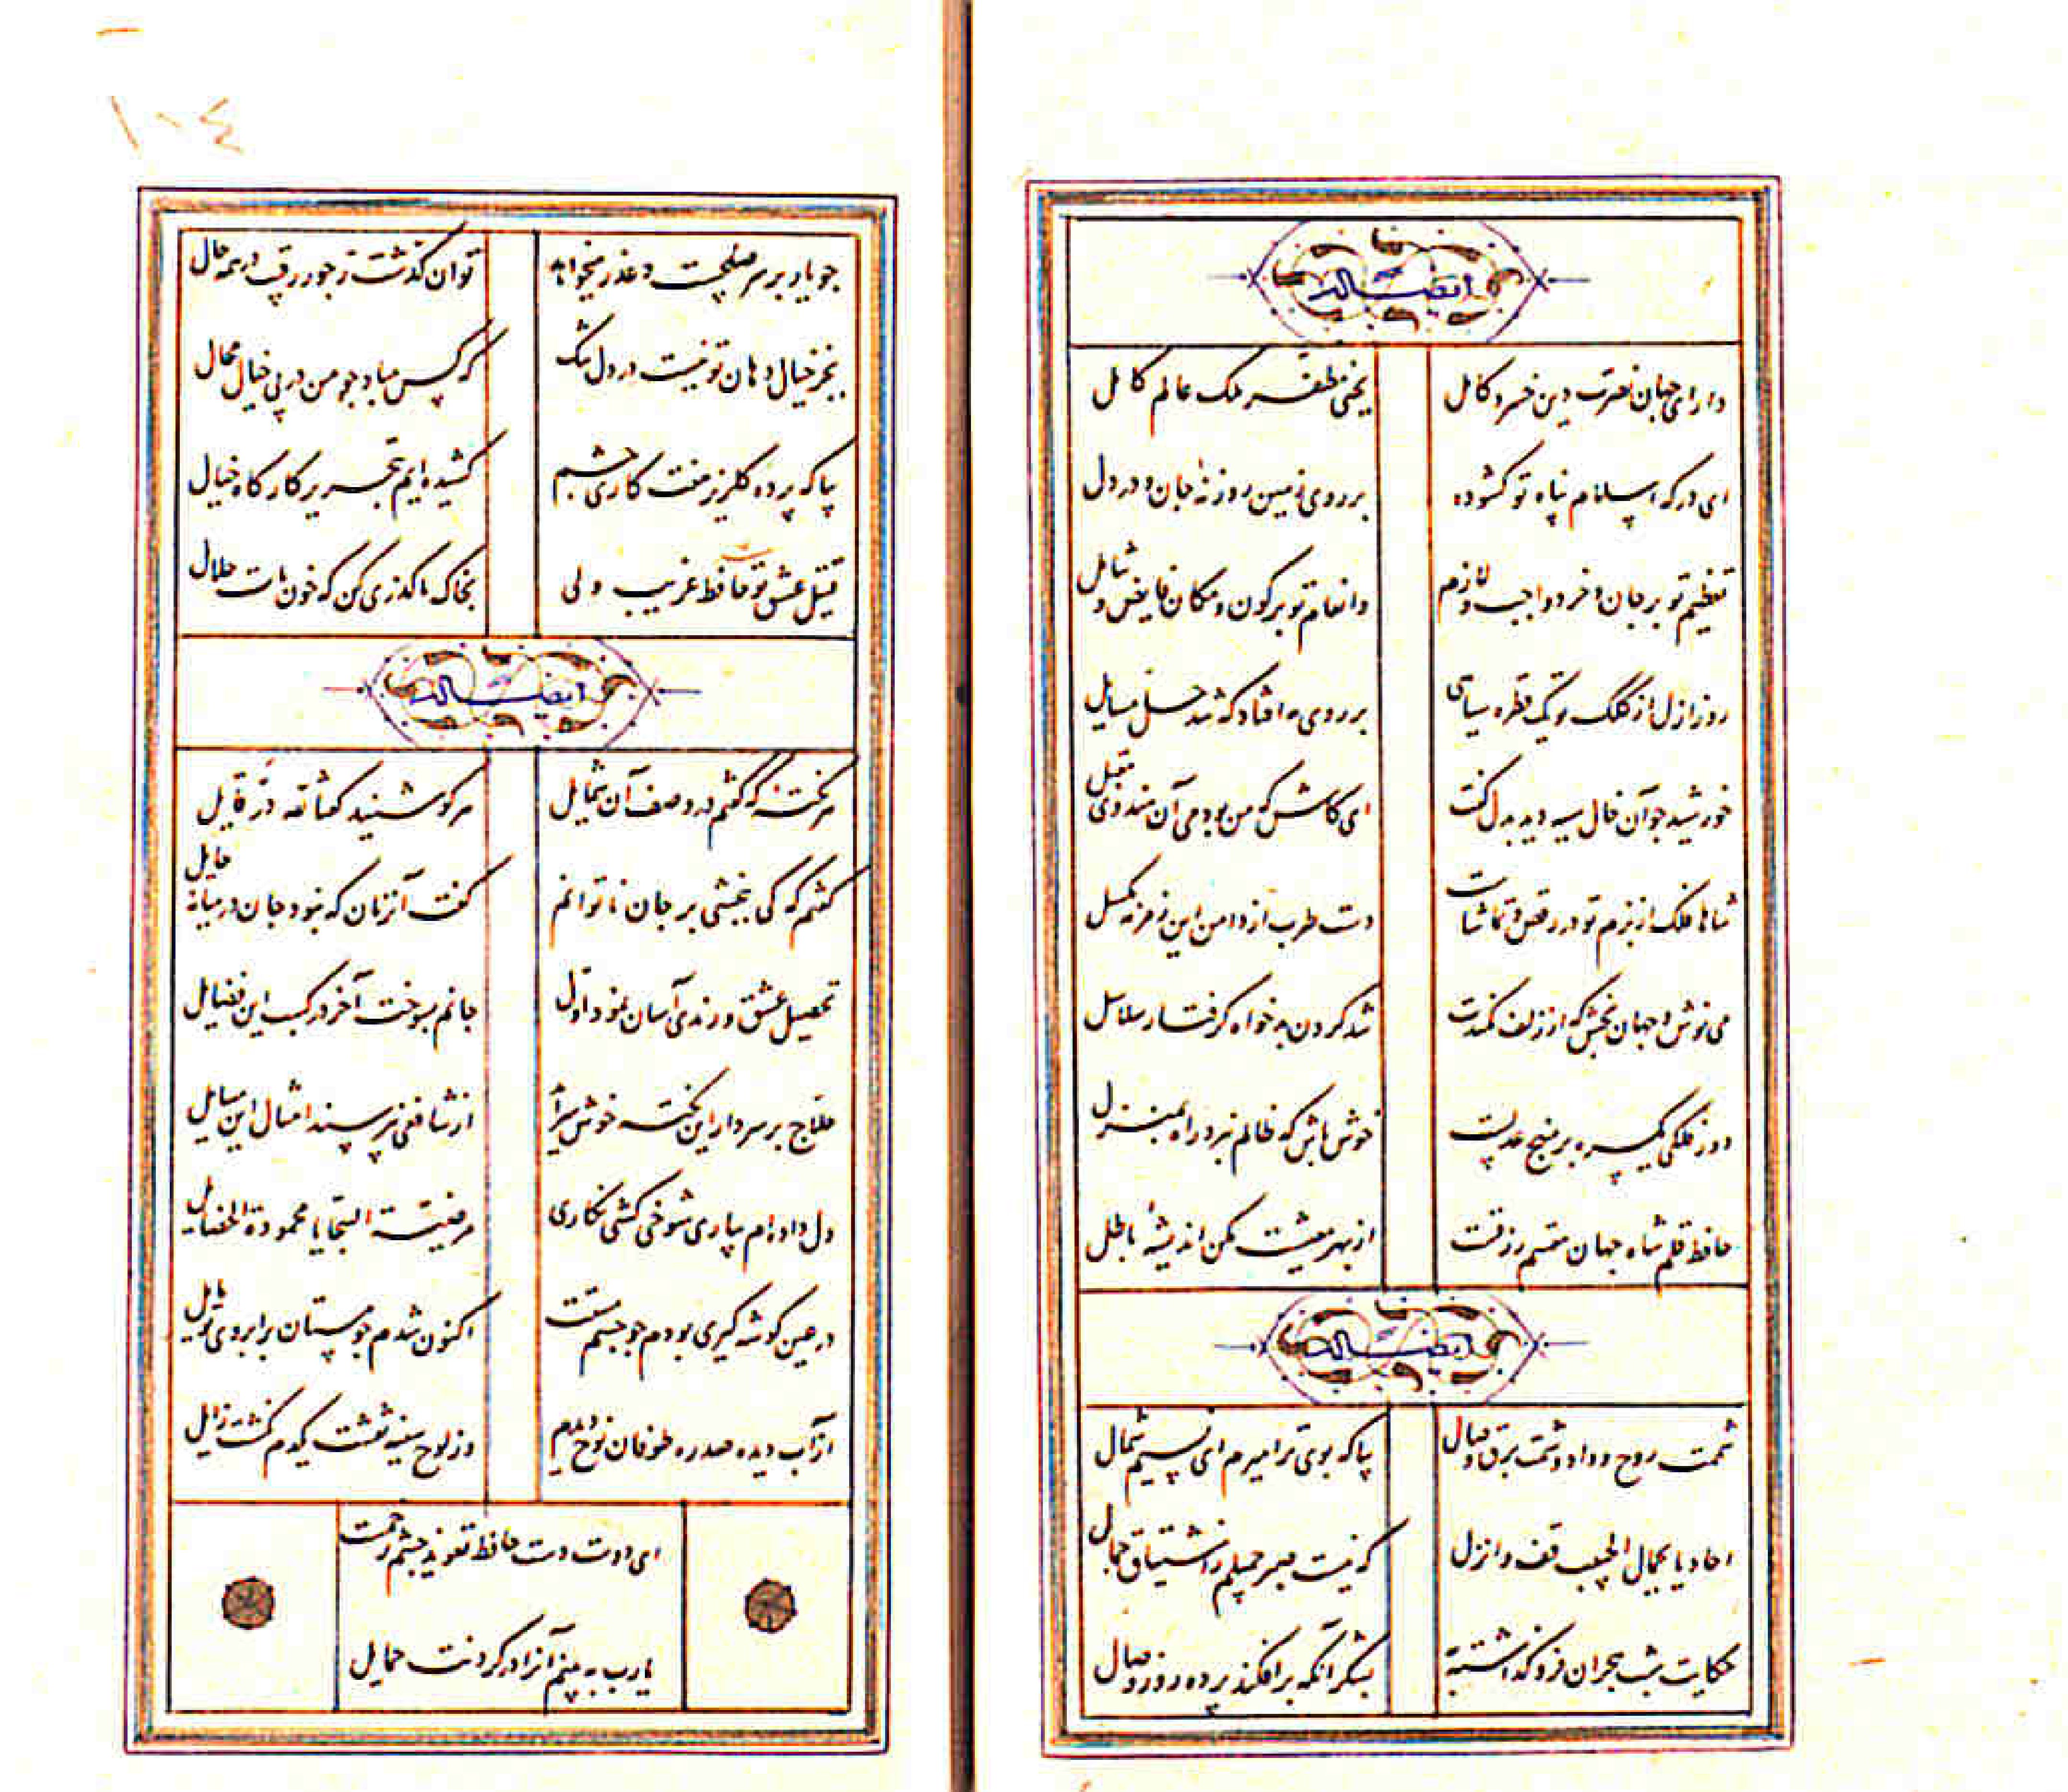 ایضاً له
دارای جهان نصرت دین خسرو کامل یحیی مظفر ملک عالم کامل
ای درکه اسلام پناه تو کشوده بر روی زمین روزنهٔ جان و در دل
تعظیم تو بر جان و خرد واجب و لازم وانعام تو بر کون و مکان فایض و شامل
روز ازل از کلک تو یک قطره سیاهی بر روی مه افتاد که شد حل مسایل
خورشید جو آن خال سیه دید بدل کفت ای کاش که من بودمی آن هندوی مقبل
شاها فلک از بزم تو در رقص و تماشاست دست طرب از دامن این زمزمه مکسل
می نوش و جهان بخش که از زلف کمندت شد کردن بدخواه کرفتار سلاسل
دور فلکی یکسره بر منهج عدلست خوش باش که ظالم نبرد راه بمنزل
حافظ قلم شاه جهان مقسم رزقست از بهر معیشت مکن اندیشهٔ باطل
ایضاً له
شممت روح وداد و شمت برق وصال بیا که بوی ترا میرم ای نسیم شمال
احادیا بجمال الحبیب قف وانزل که نیست صبر جمیلم ز اشتیاق جمال
حکایت شب هجران فرو کذاشته به بشکر آنکه برافکند پرده روز وصال
۱۰۴
جو یار بر سر صلحست و عذر میخواهد توان کذشت ز جور رقیب در همه حال
بجز خیال دهان تو نیست در دل تنک که کس مباد جو من در پی خیال محال
بیا که پرده کلریز هفت کاری جشم کشیده ایم بتحریر کارکاه خیال
قتیل عشق تو شد حافظ غریب ولی بخاک ما کذری کن که خون مات حلال
ایضاً له
هر نکته که کفتم در وصف آن شمایل هر کو شنید کفتا لله در قایل
کفتم که کی ببخشی بر جان ناتوانم کفت آنزمان که نبود جان در میانه حایل
تحصیل عشق و رندی آسان نمود اول جانم بسوخت آخر در کسب این فضایل
حلاج بر سر دار این نکته خوش سراید از شافعی نپرسند امثال این مسایل
دل داده ام بیاری شوخی کشی نکاری مرضیة السجایا محمودة الخصایل
در عین کوشه کیری بودم جو جشم مستت اکنون شدم جو مستان بر ابروی تو مایل
از آب دیده صد ره طوفان نوح دیدم وز لوح سینه نقشت هرکز نکشت زایل
ای دوست دست حافظ تعویذ جشم زخمست
یارب به بینم آنرا در کردنت حمایل